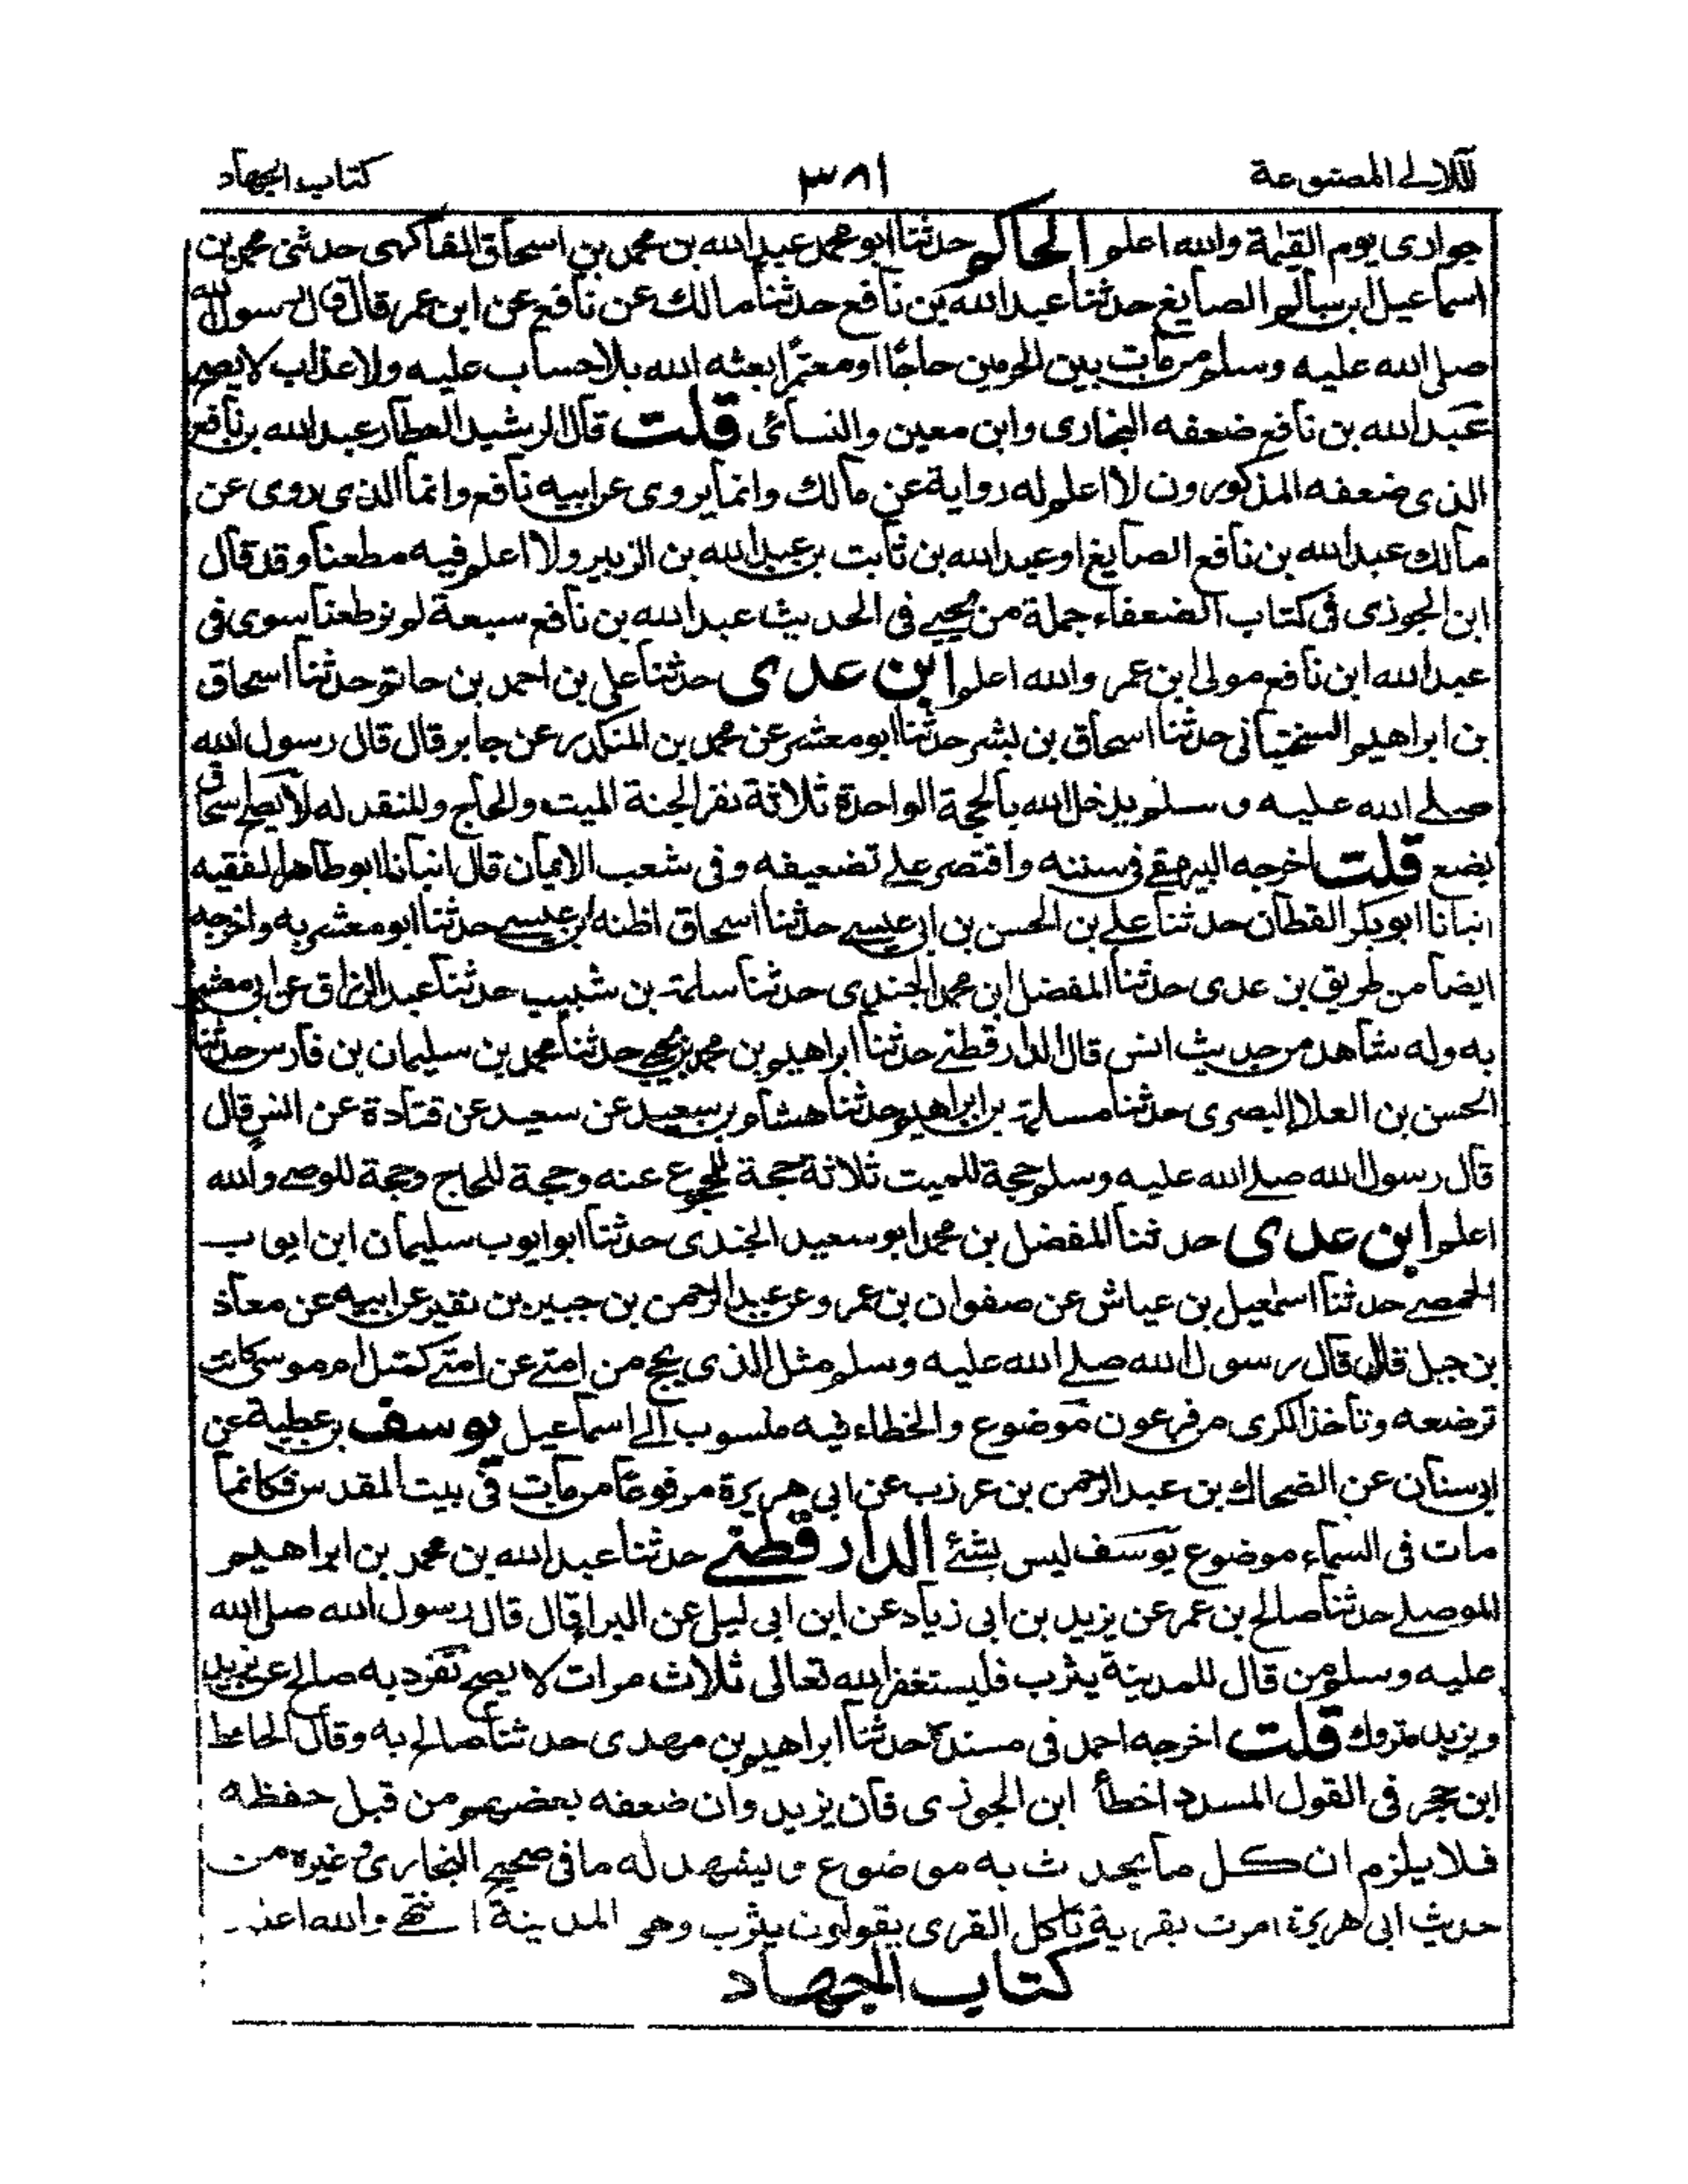 اللآلئ المصنوعة ٣٨١ كتاب الجهاد
جوادی يوم القيمة والله اعلم الحاكم حدثنا ابو محمد عبد الله بن محمد بن اسحاق الفاكهی حدثنی محمد بن
اسماعيل بن سالم الصايغ حدثنا عبد الله بن نافع حدثنا مالك عن نافع عن ابن عمر قال قال رسول الله
صلى الله عليه وسلم من مات بين الحرمين حاجًا او معتمرًا بعثه الله بلا حساب عليه ولا عذاب لا يصح
عبد الله بن نافع ضعفه البخاری وابن معين والنسائی قلت قال الرشيد العطار عبد الله بن نافع
الذی ضعفه المذكورون لا اعلم له رواية عن مالك وانما يروی عن ابيه نافع وانما الذی يروی عن
مالك عبد الله بن نافع الصايغ او عبد الله بن ثابت بن عبد الله بن الزبير ولا اعلم فيه مطعنا وقد قال
ابن الجوزی فی كتاب الضعفاء جملة من يجيی فی الحديث عبد الله بن نافع سبعة لم نر طعنا سوی فی
عبد الله ابن نافع مولی ابن عمر والله اعلم ابن عدی حدثنا علی بن احمد بن حاتم حدثنا اسحاق
بن ابراهيم السختيانی حدثنا اسحاق بن بشر حدثنا ابو معشر عن محمد بن المنكدر عن جابر قال قال رسول الله
صلے الله عليه وسلم يدخل الله بالحجة الواحدة ثلاثة نفر الجنة الميت والحاج والمنفذ له لا يصح اسحاق
يضع قلت اخرجه البيهقے فی سننه واقتصر علے تضعيفه وفی شعب الايمان قال انبانا ابو طاهر الفقيه
انبانا ابو بكر القطان حدثنا علے بن الحسن بن ابی عيسے حدثنا اسحاق اظنه ابن عيسے حدثنا ابو معشر به واخرجه
ايضا من طريق بن عدی حدثنا المفضل ابن محمد الجندی حدثنا سلمة بن شبيب حدثنا عبد الرزاق عن ابی معشر
به وله شاهد من حديث انس قال الدارقطنے حدثنا ابراهيم بن محمد بن يحيے حدثنا محمد بن سليمان بن فارس حدثنا
الحسن بن العلاء البصری حدثنا مسلمة بن ابراهيم حدثنا هشام بن سعيد عن سعيد عن قتادة عن انس قال
قال رسول الله صلے الله عليه وسلم حجة للميت ثلاثة حجة للمحجوج عنه وحجة للحاج وحجة للوصے والله
اعلم ابن عدی حدثنا المفضل بن محمد ابو سعيد الجندی حدثنا ابو ايوب سليمان ابن ايوب
الحمصے حدثنا اسمعيل بن عياش عن صفوان بن عمرو عن عبد الرحمن بن جبير بن نفير عن ابيه عن معاذ
بن جبل قال قال رسول الله صلے الله عليه وسلم مثل الذی يحج من امتے عن امتے كمثل ام موسی كانت
ترضعه وتأخذ الكری من فرعون موضوع والخطاء فيه منسوب الے اسماعيل يوسف بن عطية عن
ابی سنان عن الضحاك بن عبد الرحمن بن عرزب عن ابی هريرة مرفوعًا من مات فی بيت المقدس فكانما
مات فی السماء موضوع يوسف ليس بشئے الدارقطنے حدثنا عبد الله بن محمد بن ابراهيم
الموصلے حدثنا صالح بن عمر عن يزيد بن ابی زياد عن ابن ابی ليلی عن البراء قال قال رسول الله صلى الله
عليه وسلم من قال للمدينة يثرب فليستغفر الله تعالی ثلاث مرات لا يصح تفرد به صالح عن يزيد
ويزيد متروك قلت اخرجه احمد فی مسنده حدثنا ابراهيم بن مهدی حدثنا صالح به وقال الحافظ
ابن حجر فی القول المسدد اخطأ ابن الجوزی فان يزيد وان ضعفه بعضهم من قبل حفظه
فلا يلزم ان كل ما يحدث به موضوع ويشهد له ما فی صحيح البخاری وغيره من
حديث ابی هريرة امرت بقرية تاكل القری يقولون يثرب وهی المدينة انتهے والله اعلم
كتاب الجهاد